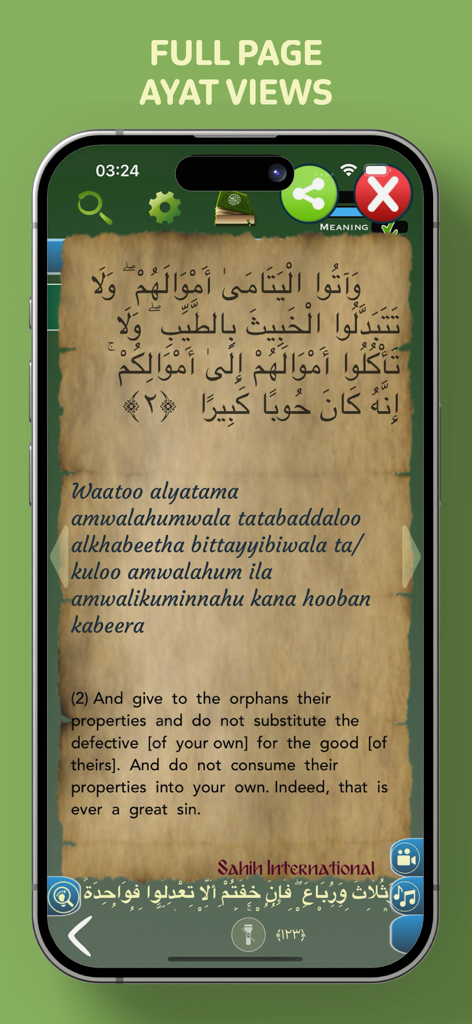 FULL PAGE
AYAT VIEWS
03:24
MEANING
وَآتُوا الْيَتَامَىٰ أَمْوَالَهُمْ ۖ وَلَا
تَتَبَدَّلُوا الْخَبِيثَ بِالطَّيِّبِ ۖ وَلَا
تَأْكُلُوا أَمْوَالَهُمْ إِلَىٰ أَمْوَالِكُمْ ۚ
إِنَّهُ كَانَ حُوبًا كَبِيرًا ﴿٢﴾
Waatoo alyatama
amwalahumwala tatabaddaloo
alkhabeetha bittayyibiwala ta/
kuloo amwalahum ila
amwalikuminnahu kana hooban
kabeera
(2) And give to the orphans their
properties and do not substitute the
defective [of your own] for the good [of
theirs]. And do not consume their
properties into your own. Indeed, that is
ever a great sin.
Sahih International
ثُلَاثَ وَرُبَاعَ ۖ فَإِنْ خِفْتُمْ أَلَّا تَعْدِلُوا فَوَاحِدَةً
﴿١٢٣﴾